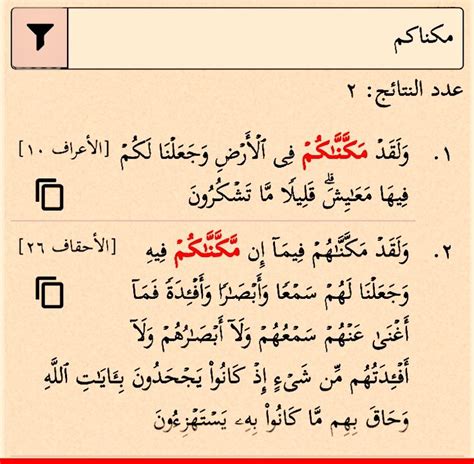 مكناكم
عدد النتائج: ٢
١. وَلَقَدۡ مَكَّنَّٰكُمۡ فِي ٱلۡأَرۡضِ وَجَعَلۡنَا لَكُمۡ [الأعراف ١٠]
فِيهَا مَعَٰيِشَۗ قَلِيلٗا مَّا تَشۡكُرُونَ
٢. وَلَقَدۡ مَكَّنَّٰهُمۡ فِيمَآ إِن مَّكَّنَّٰكُمۡ فِيهِ [الأحقاف ٢٦]
وَجَعَلۡنَا لَهُمۡ سَمۡعٗا وَأَبۡصَٰرٗا وَأَفۡـِٔدَةٗ فَمَآ
أَغۡنَىٰ عَنۡهُمۡ سَمۡعُهُمۡ وَلَآ أَبۡصَٰرُهُمۡ وَلَآ
أَفۡـِٔدَتُهُم مِّن شَيۡءٍ إِذۡ كَانُواْ يَجۡحَدُونَ بِـَٔايَٰتِ ٱللَّهِ
وَحَاقَ بِهِم مَّا كَانُواْ بِهِۦ يَسۡتَهۡزِءُونَ